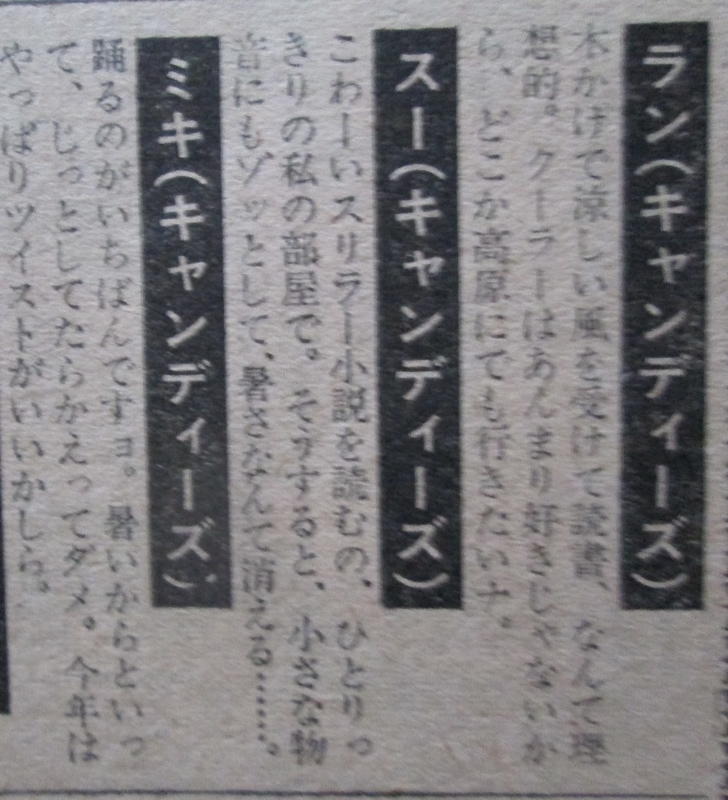 ラン(キャンディーズ)
木かげで涼しい風を受けて読書、なんて理
想的。クーラーはあんまり好きじゃないか
ら、どこか高原にでも行きたいナ。
スー(キャンディーズ)
こわーいスリラー小説を読むの、ひとりっ
きりの私の部屋で。そうすると、小さな物
音にもゾッとして、暑さなんて消える……。
ミキ(キャンディーズ)
踊るのがいちばんですョ。暑いからといっ
て、じっとしてたらかえってダメ。今年は
やっぱりツイストがいいかしら。